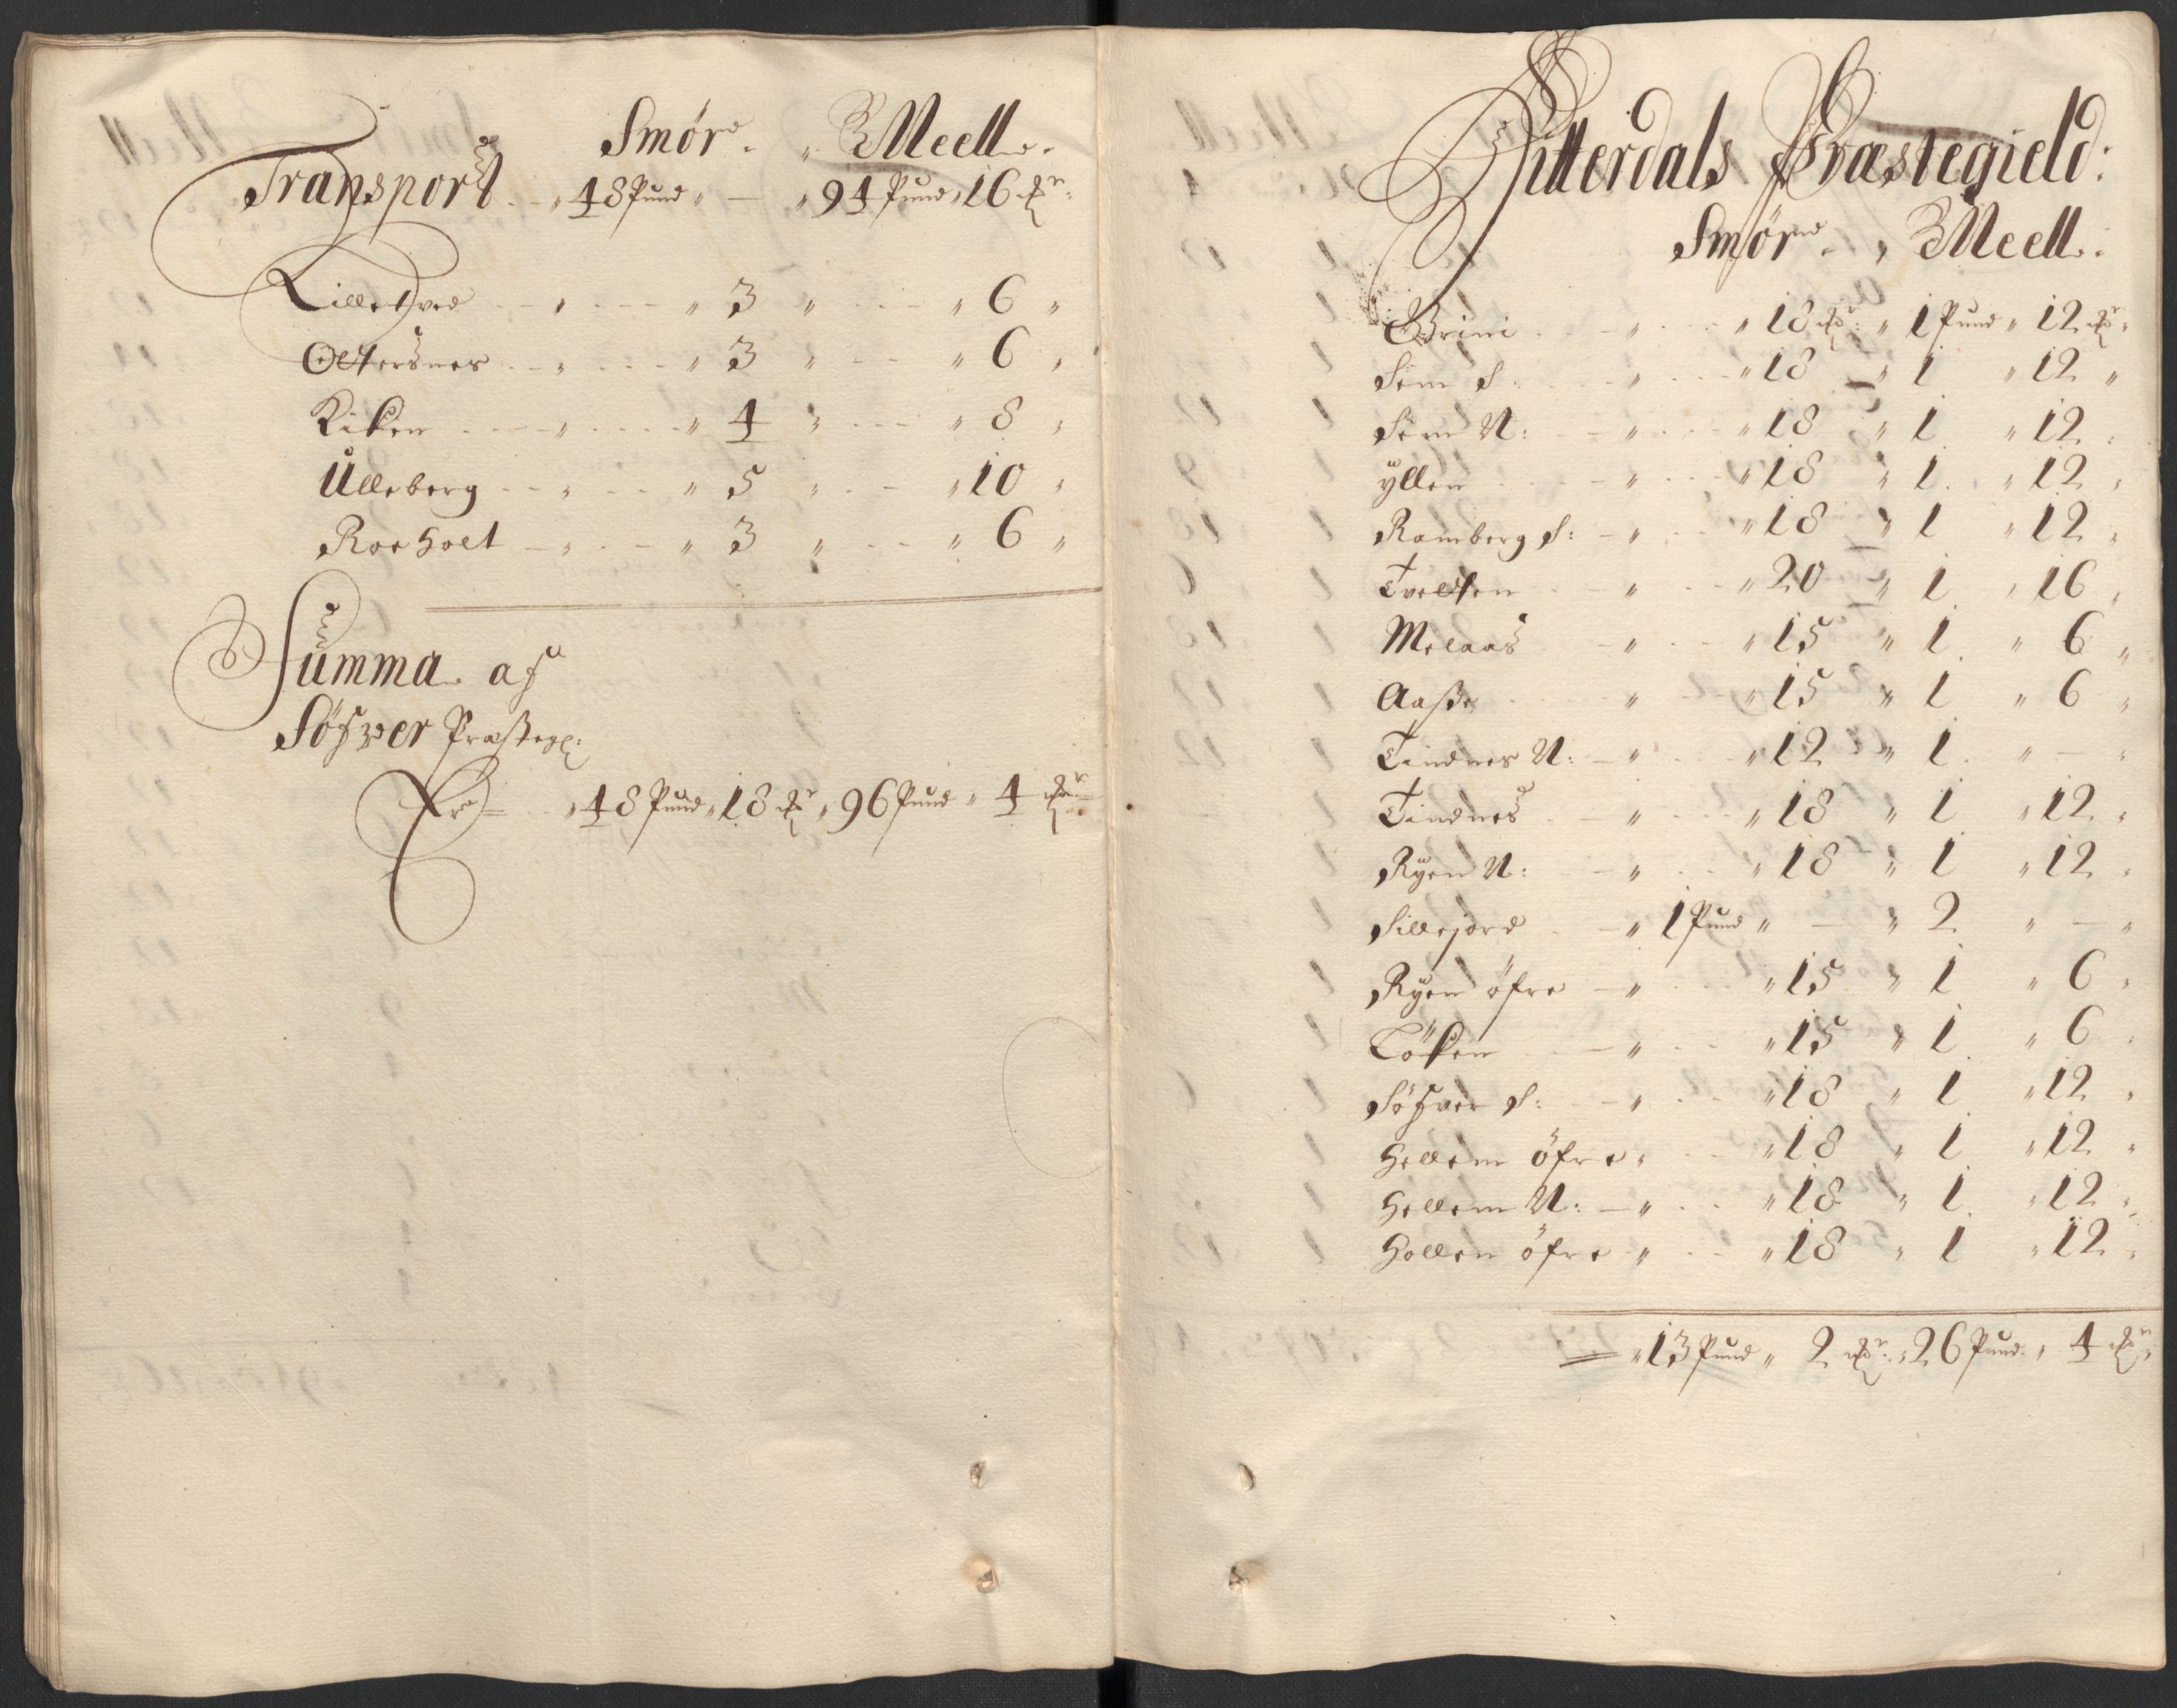 Smör. Meell.
Transport 48 Pund " — " 94 Pund " 16 ℔r:
Lilletved " " 3 " " 6 "
Oltersnes " " 3 " " 6 "
Riken " " 4 " " 8 "
Ulleberg " " 5 " " 10 "
Roeholt " " 3 " " 6 "
Summa af
Söfver Præsteg:
Er " 48 Pund " 18 ℔r " 96 Pund " 4 ℔r
Hitterdals Præstegield:
Smör " Meell:
Grini " " 18 ℔r: " 1 Pund " 12 ℔r "
Sem S: " " 18 " 1 " 12 "
Sem N: " " 18 " 1 " 12 "
yllen " " 18 " 1 " 12 "
Ramberg S: " " 18 " 1 " 12 "
Tvelten " " 20 " 1 " 16 "
Melaas " " 15 " 1 " 6 "
Aase " " 15 " 1 " 6 "
Tindnes N: " " 12 " 1 " — "
Tindnes " " 18 " 1 " 12 "
Ryen N: " " 18 " 1 " 12 "
Sillejord " 1 Pund " — " 2 " — "
Ryen öfre " " 15 " 1 " 6 "
Löken " " 15 " 1 " 6 "
Söfver S: " " 18 " 1 " 12 "
Hellem öfre " " 18 " 1 " 12 "
Hellem N: " " 18 " 1 " 12 "
Hollen öfre " " 18 " 1 " 12 "
" 13 Pund " 2 ℔r: " 26 Pund " 4 ℔r "